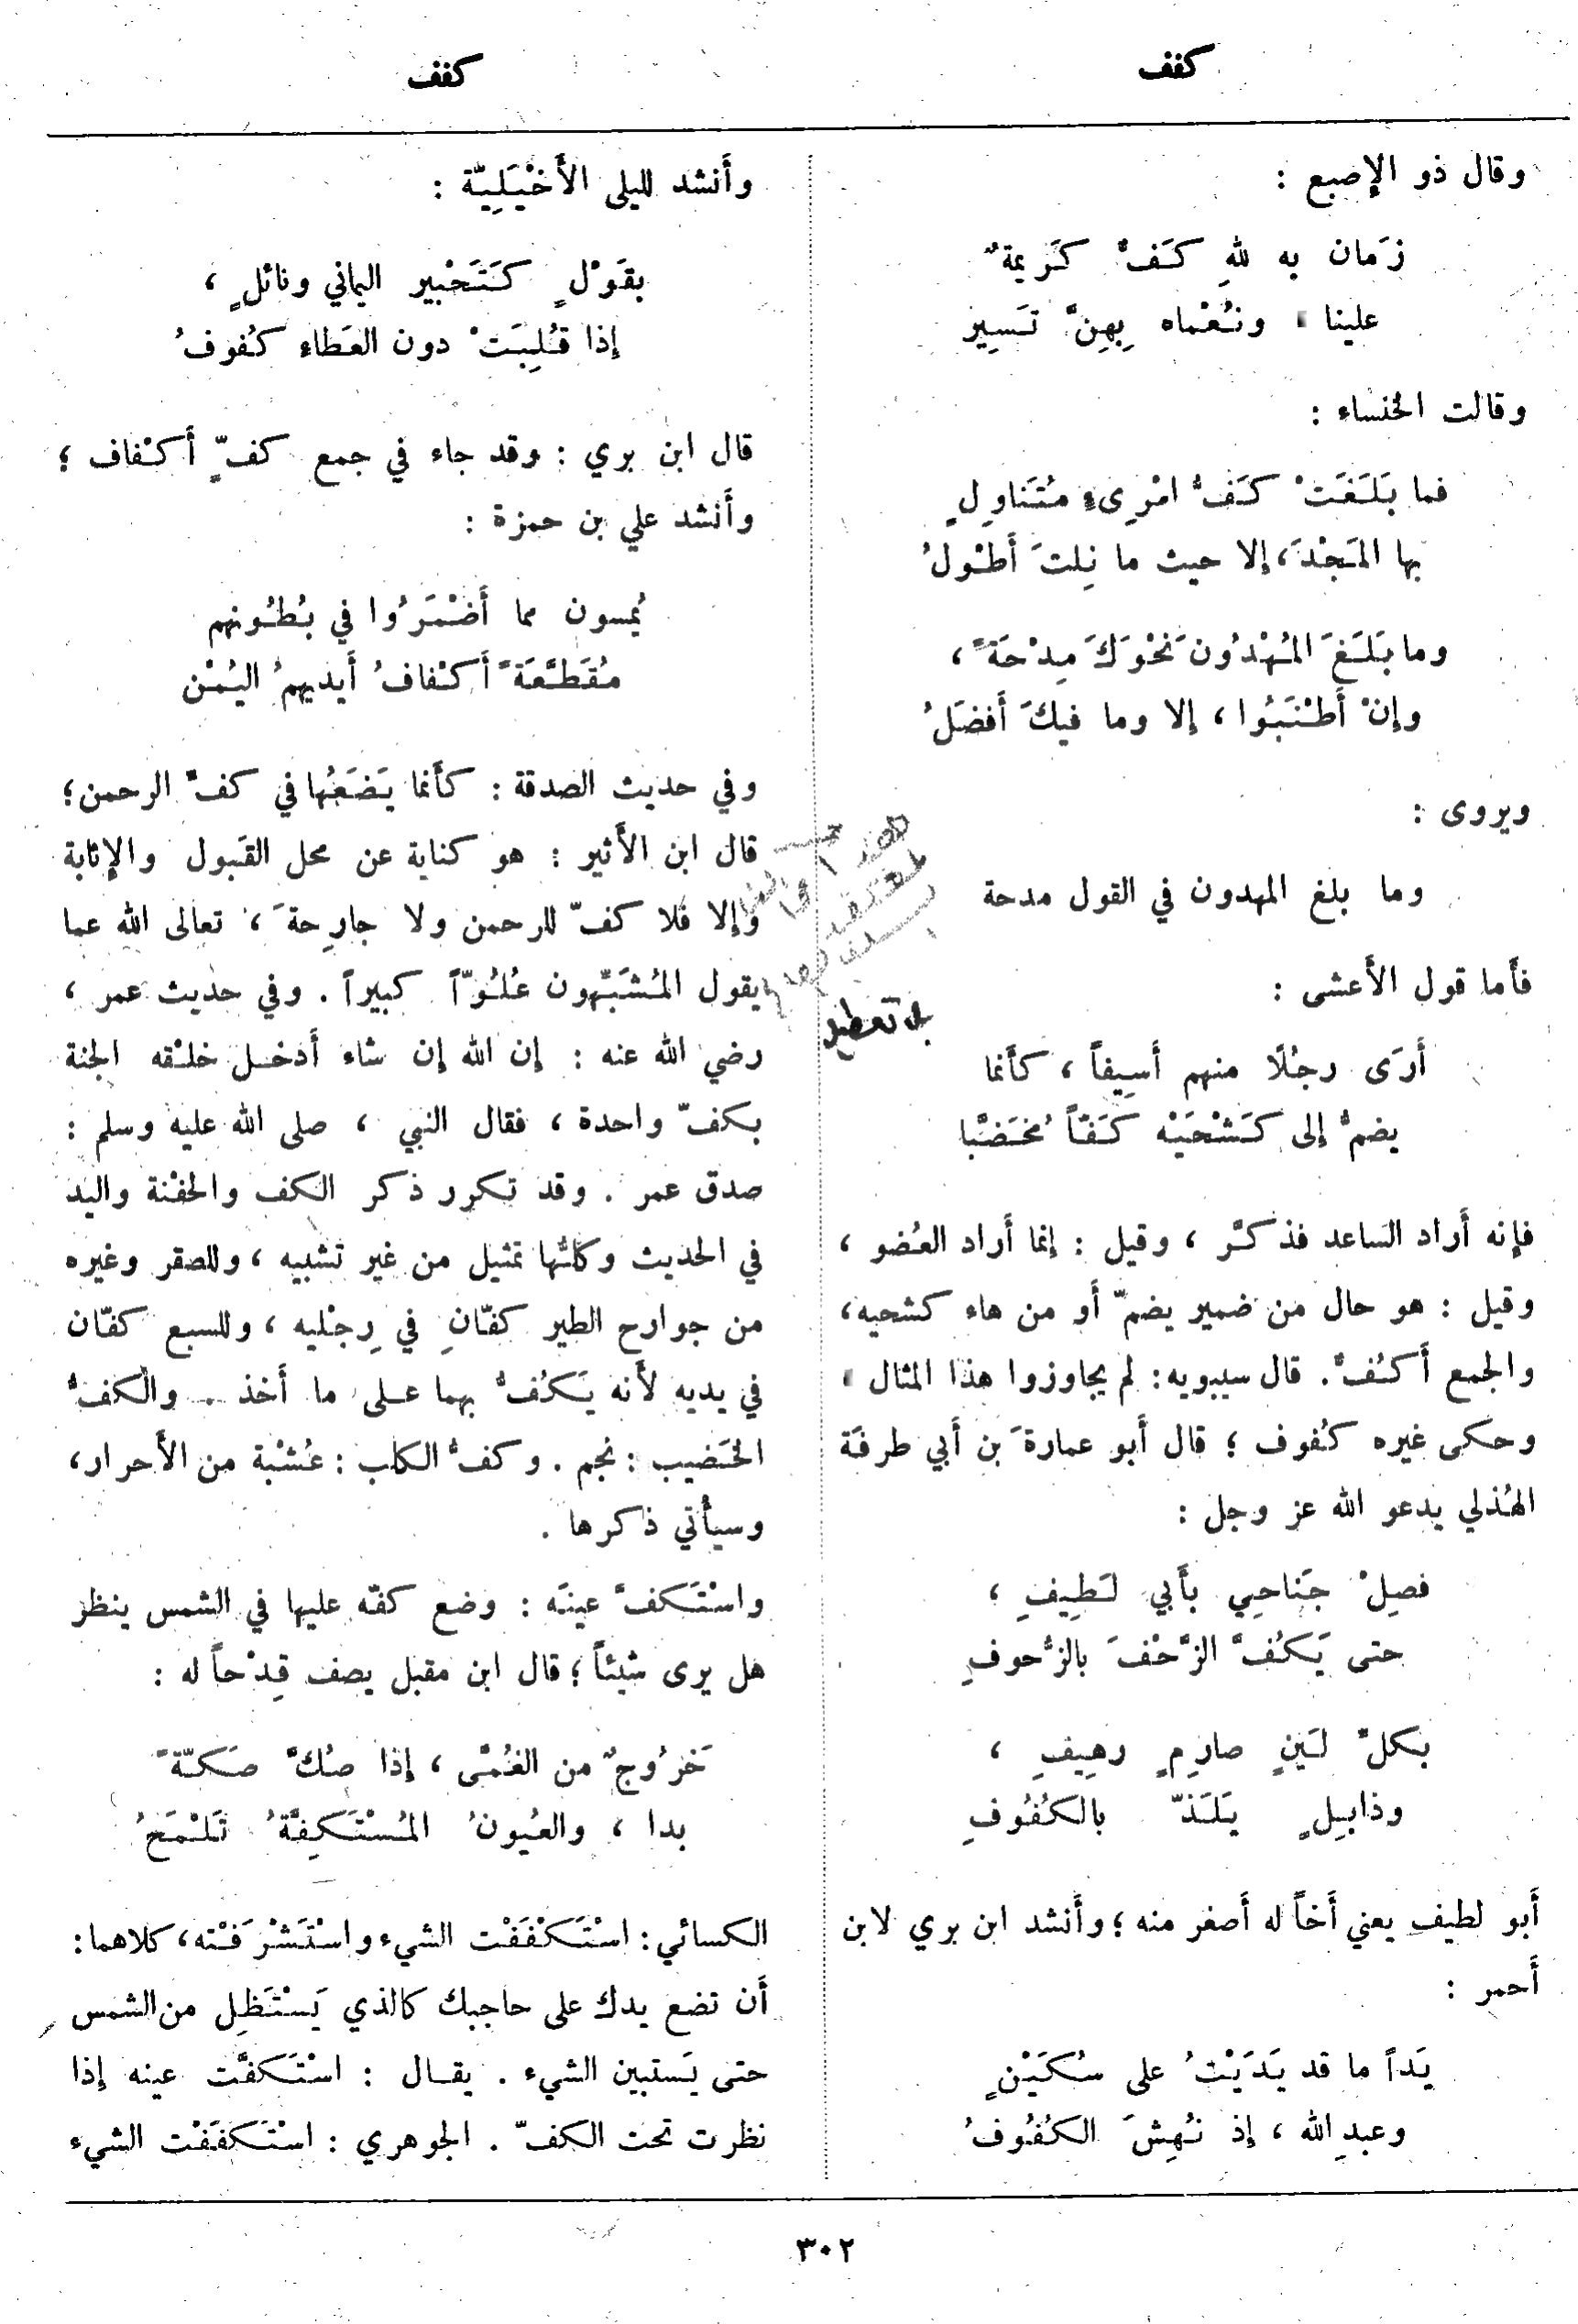 كفف
كفف
وقال ذو الإصبع :
زَمان به للهِ كَفٌّ كَريمةٌ
علينا ، ونُعْماه بِهِنَّ تَسِير
وقالت الخنساء :
فما بَلَغَتْ كَفُّ امْرِىءٍ مُتَناوِلٍ
بها المَجْدَ ، إلا حيث ما نِلتَ أَطْولُ
وما بَلَغَ المُهْدُون نَحْوَكَ مِدْحَةً ،
وإنْ أَطْنَبُوا ، إلا وما فيكَ أَفضَلُ
ويروى :
وما بلغ المهدون في القول مدحة
فأَما قول الأَعشى :
أَرَى رجُلًا منهم أَسِيفاً ، كأَنما
يضمُّ إلى كَشْحَيْه كَفّاً مُخَضَّبا
فإنه أَراد الساعد فذكَّر ، وقيل : إنما أَراد العُضو ،
وقيل : هو حال من ضمير يضمّ أَو من هاء كشحيه ،
والجمع أَكُفٌّ . قال سيبويه : لم يجاوزوا هذا المثال ،
وحكى غيره كُفوف ؛ قال أَبو عمارةَ بن أَبي طرفَة
الهُذلي يدعو الله عز وجل :
فصِلْ جَناحِي بأَبي لَطِيفِ ،
حتى يَكُفَّ الزَّحْفَ بالزُّحوفِ
بكلِّ لَينٍ صارِمٍ رهِيفِ ،
وذابِلٍ يَلَذّ بالكُفُوفِ
أَبو لطيف يعني أَخاً له أَصغر منه ؛ وأَنشد ابن بري لابن
أَحمر :
يَداً ما قد يَدَيْتُ على سُكَيْنٍ
وعبدِ الله ، إذ نُهِشَ الكُفُوفُ
وأَنشد لليلى الأَخْيَلِيّة :
بقَوْلٍ كَتَحْبير اليماني ونائلٍ ،
إذا قُلِبَتْ دون العَطاء كُفوفُ
قال ابن بري : وقد جاء في جمع كفٍّ أَكْفاف ؛
وأَنشد علي بن حمزة :
يُمسون مما أَضْمَرُوا في بُطُونهم
مُقَطَّعَةً أَكْفافُ أَيديهمُ اليُمْن
وفي حديث الصدقة : كأَنما يَضَعُها في كفِّ الرحمن ؛
قال ابن الأَثير : هو كناية عن محل القَبول والإثابة
وإلا فلا كفّ للرحمن ولا جارِحةَ ، تعالى الله عما
يقول المُشَبِّهون عُلُوّاً كبيراً . وفي حديث عمر ،
رضي الله عنه : إن الله إن شاء أَدخل خلْقه الجنة
بكفّ واحدة ، فقال النبي ، صلى الله عليه وسلم :
صدق عمر . وقد تكرر ذكر الكف والحفْنة واليد
في الحديث وكلُّها تمثيل من غير تشبيه ، وللصقر وغيره
من جوارح الطير كفّانِ في رِجْليه ، وللسبع كفّان
في يديه لأَنه يَكُفُّ بهما على ما أَخذ . والكفُّ
الخَضيب : نجم . وكفُّ الكلب : عُشْبة من الأَحرار ،
وسيأْتي ذكرها .
واسْتَكفَّ عينَه : وضع كفّه عليها في الشمس ينظر
هل يرى شيئاً ؛ قال ابن مقبل يصف قِدْحاً له :
خَرُوجٌ من الغُمَّى ، إذا صُكَّ صَكّةً
بدا ، والعُيونُ المُسْتَكِفَّةُ تَلْمَحُ
الكسائي : اسْتَكْفَفْت الشيء واسْتَشْرَفْته ، كلاهما :
أَن تضع يدك على حاجبك كالذي يَسْتَظِل من الشمس
حتى يَستبين الشيء . يقال : اسْتَكفَّت عينه إذا
نظرت تحت الكفّ . الجوهري : اسْتَكفَفْت الشيء
٣٠٢